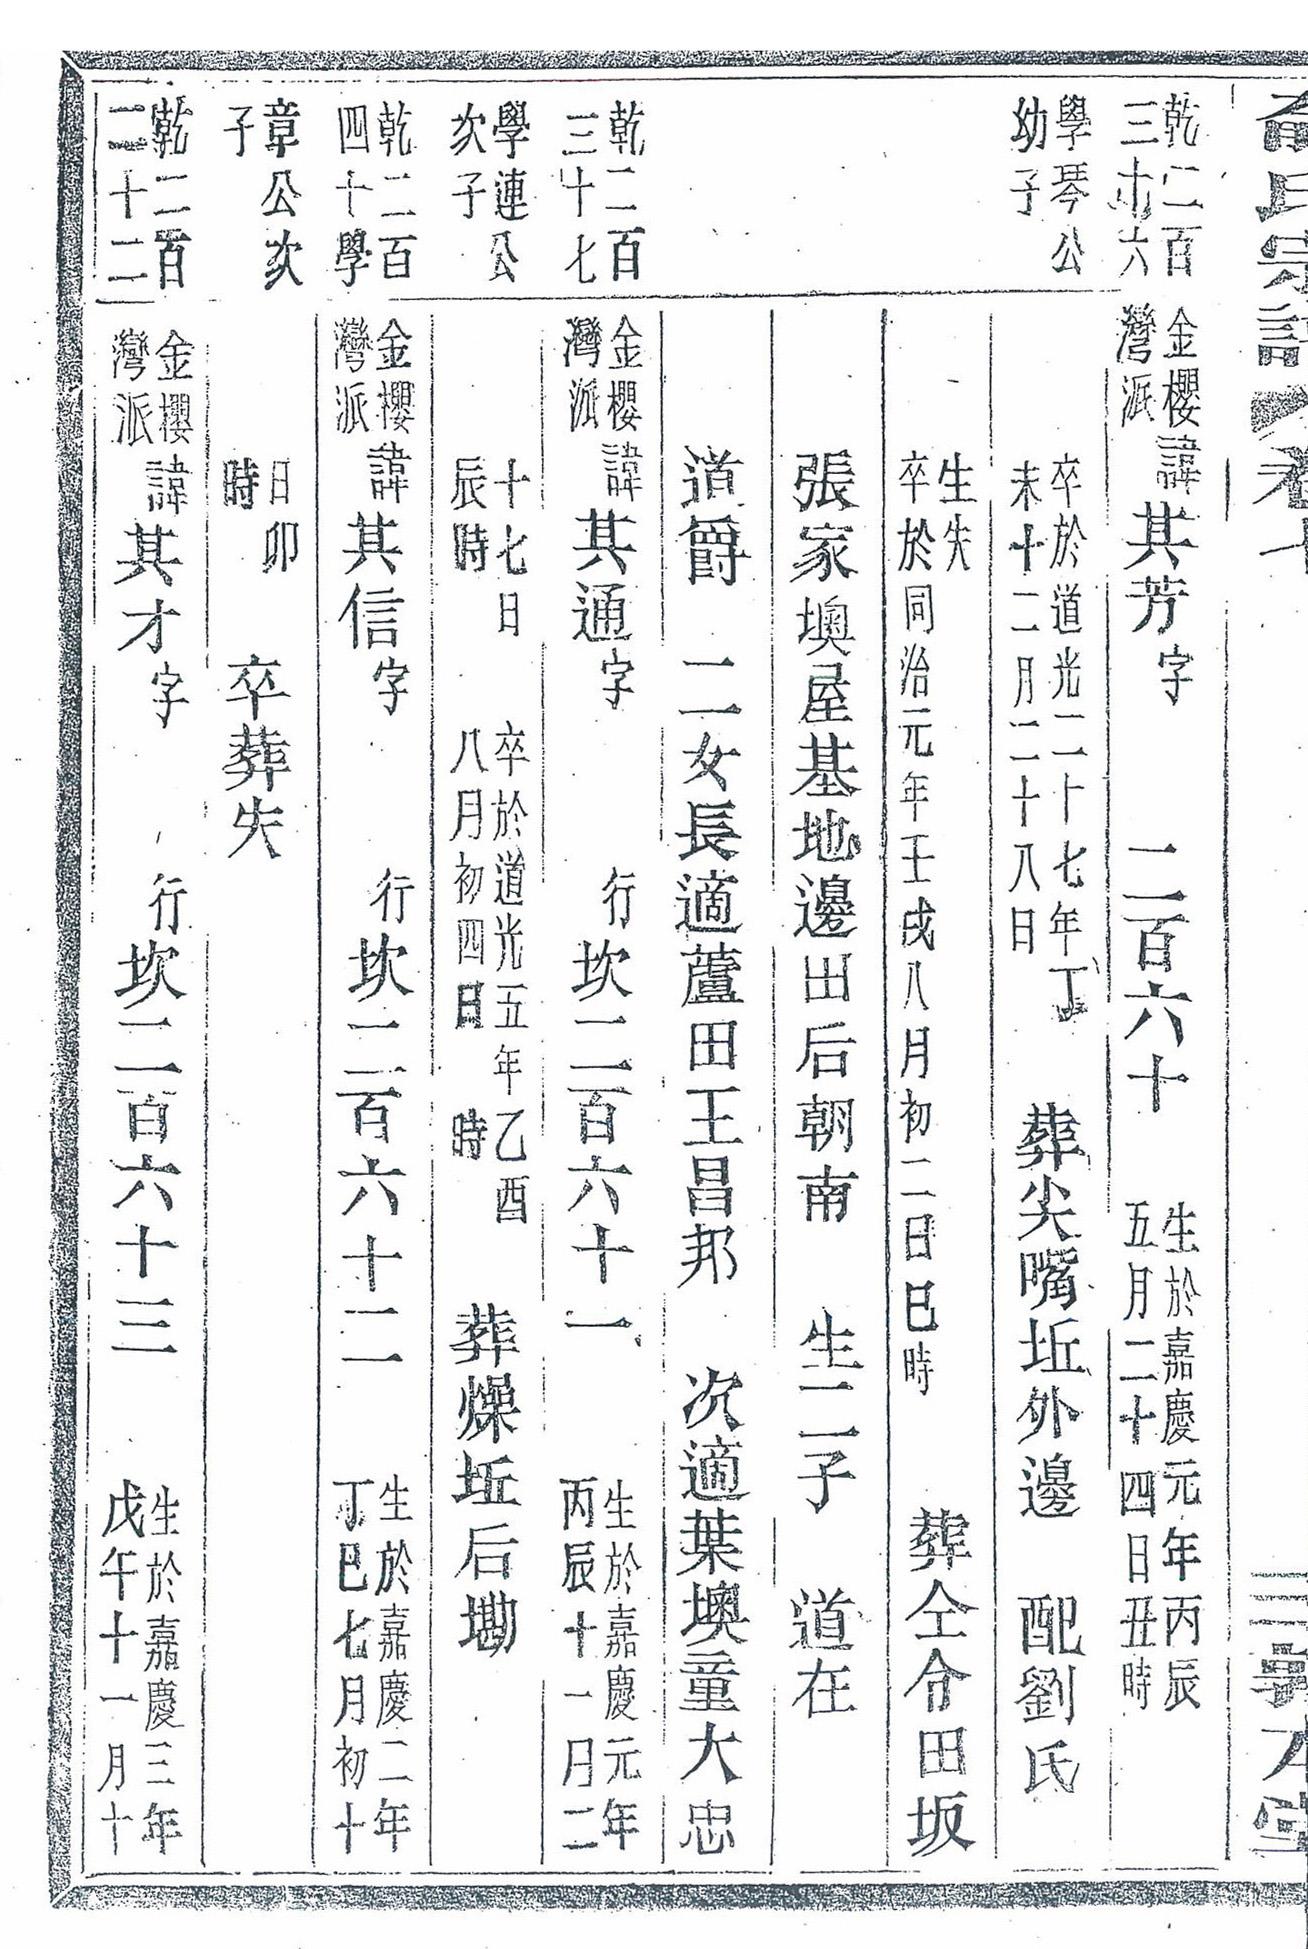 氏宗譜 卷 本堂
乾二百三十六 金櫻灣派 諱其芳字 二百六十 生於嘉慶元年丙辰五月二十四日丑時
學琴公幼子 卒於道光二十七年丁未十二月二十八日 葬尖嘴坵外邊 配劉氏
生失卒於同治元年壬戌八月初二日巳時 葬仝仚田坂
張家墺屋基地邊出后朝南 生二子 道在
道爵 二女長適蘆田王昌邦 次適葉墺童大忠
乾二百三十七 金櫻灣派 諱其通字 行坎二百六十一 生於嘉慶元年丙辰十一月二
學連公次子 十七日辰時 卒於道光五年乙酉八月初四日 時 葬燥坵后墈
乾二百四十學 金櫻灣派 諱其信字 行坎二百六十二 生於嘉慶二年丁巳七月初十
章公次子 日卯時 卒葬失
乾二百三十二 金櫻灣派 諱其才字 行坎二百六十三 生於嘉慶三年戊午十一月十